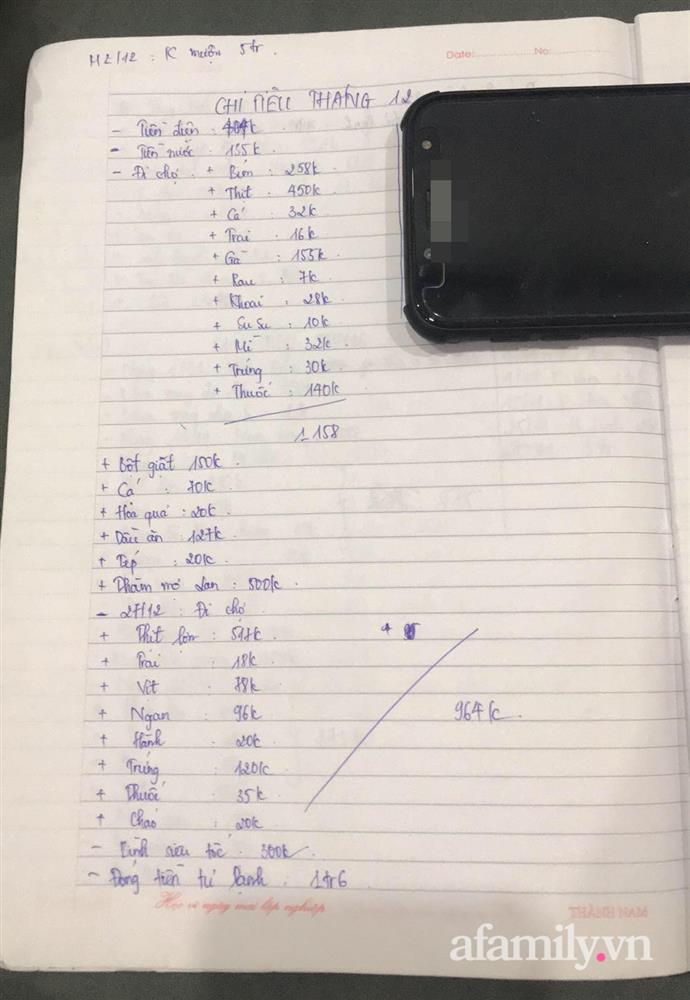 H2/12 : K mượn 5tr.
Date: No:
CHI TIÊU THÁNG 12
- Tiền điện : 404k
- Tiền nước : 135k
- Đi chợ : + Bỉm : 258k
+ Thịt : 450k
+ Cá : 32k
+ Trai : 16k
+ Gà : 155k
+ Rau : 7k
+ Khoai : 28k
+ Su Su : 10k
+ Mì : 32k
+ Trứng : 30k
+ Thuốc : 140k
1.158
+ Bột giặt 150k
+ Cá : 70k
+ Hoa quả : 20k
+ Dầu ăn : 127k
+ Tép : 20k
+ Thăm mợ Lan : 500k
- 27/12 : Đi chợ
+ Thịt lợn : 517k
+ Trai : 18k
+ Vịt : 78k
+ Ngan : 96k
964k
+ Hành : 20k
+ Trứng : 120k
+ Thuốc : 35k
+ Cháo : 20k
- Bình siêu tốc : 300k
- Đóng tiền tủ lạnh : 1tr6
Học vì ngày mai lập nghiệp
afamily.vn